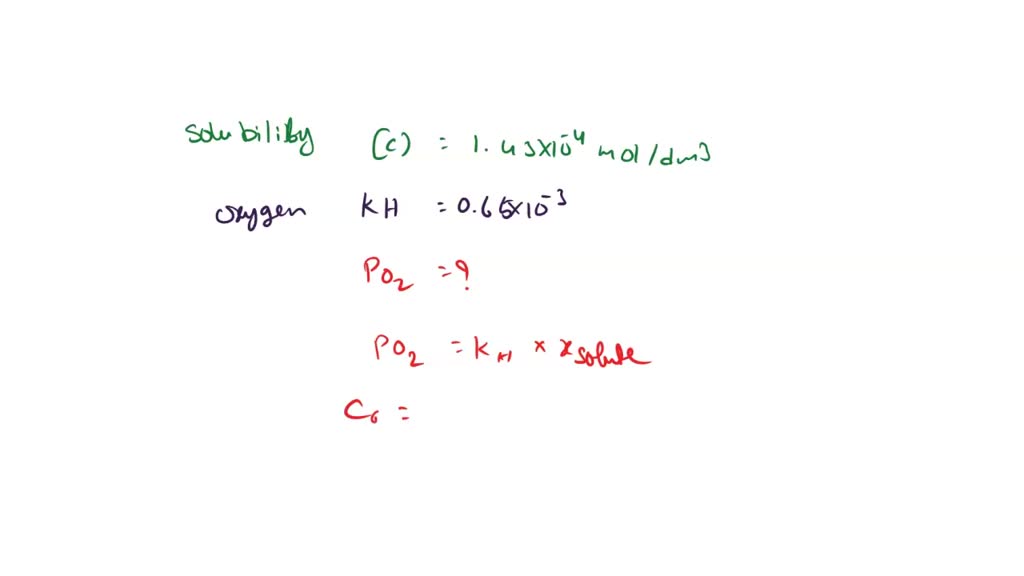 solubility (c) = 1.43x10⁻⁴ mol/dm3
oxygen KH = 0.65x10⁻³
PO₂ = ?
PO₂ = KH × xsolute
C₆ =